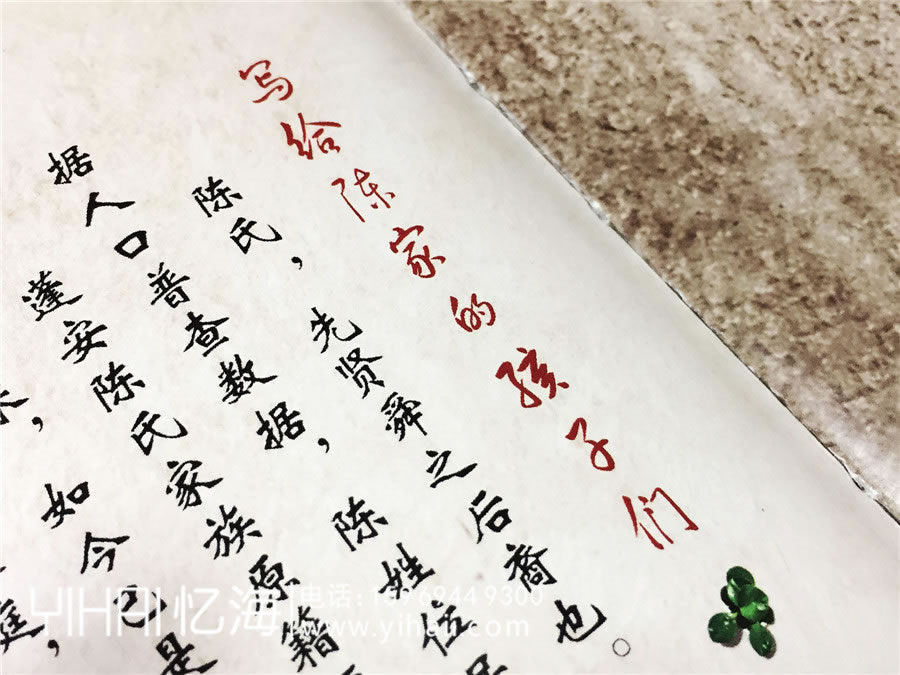 写给陈家的孩子们
陈氏，先贤舜之后裔也。
据人口普查数据，陈姓位
蓬安陈氏家族原籍
，如今已是
庭，
YIHAI忆海
电话：15969449300
www.yihaii.com